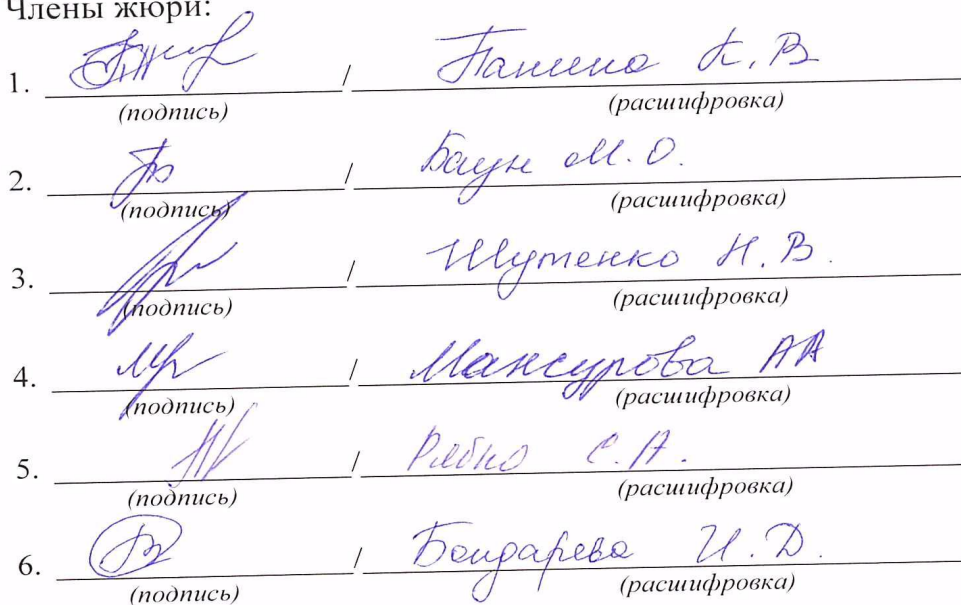 Члены жюри:
1. / Панина К. В
(подпись) (расшифровка)
2. / Баун М. О.
(подпись) (расшифровка)
3. / Шутенко Н. В.
(подпись) (расшифровка)
4. / Мансурова АА
(подпись) (расшифровка)
5. / Рябко С. А.
(подпись) (расшифровка)
6. / Бондарева И. Д.
(подпись) (расшифровка)